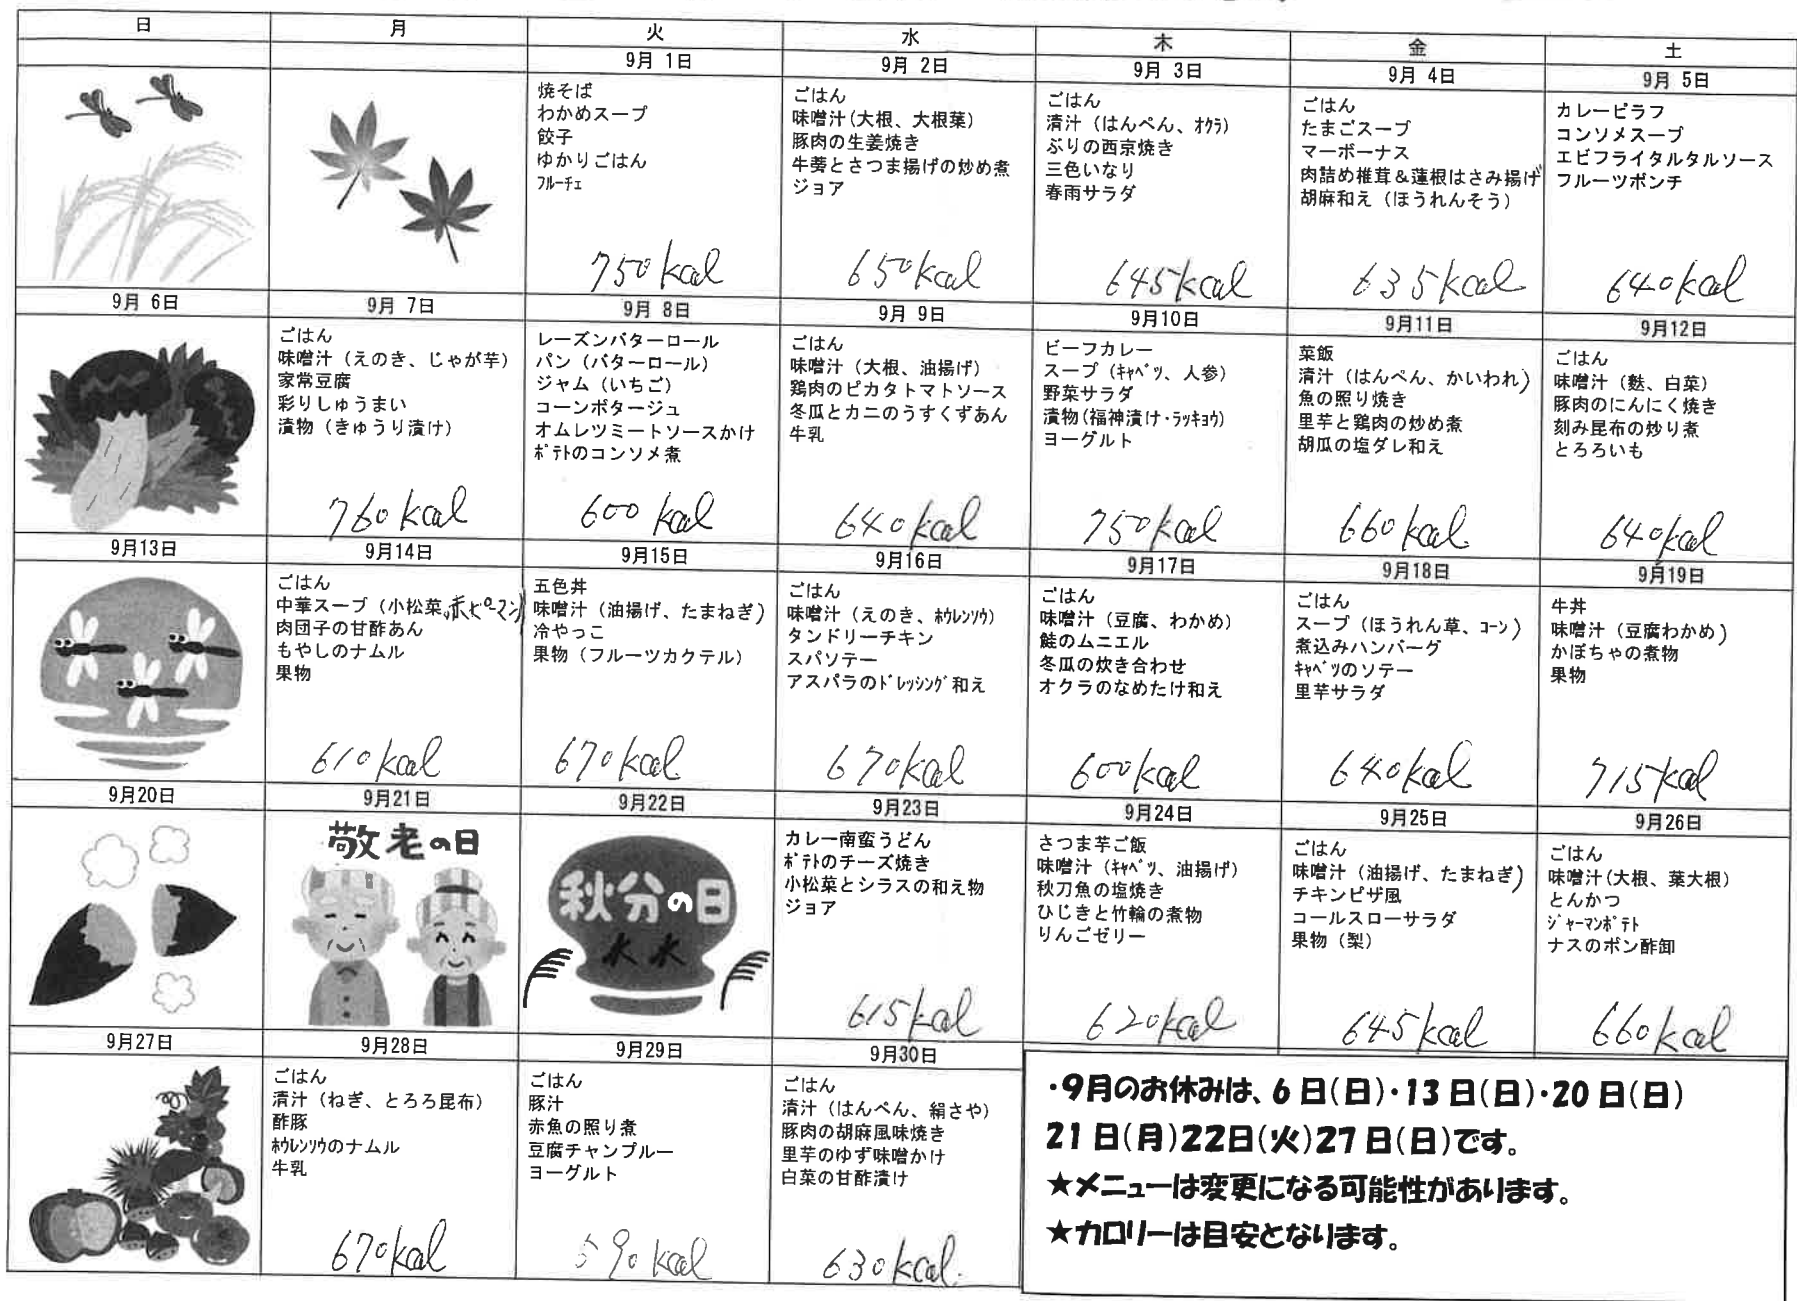 日 月 火 水 木 金 土
9月 1日
焼そば
わかめスープ
餃子
ゆかりごはん
ﾌﾙｰﾁｪ
750kcal
9月 2日
ごはん
味噌汁(大根、大根葉)
豚肉の生姜焼き
牛蒡とさつま揚げの炒め煮
ジョア
650kcal
9月 3日
ごはん
清汁(はんぺん、ｵｸﾗ)
ぶりの西京焼き
三色いなり
春雨サラダ
645kcal
9月 4日
ごはん
たまごスープ
マーボーナス
肉詰め椎茸&蓮根はさみ揚げ
胡麻和え(ほうれんそう)
635kcal
9月 5日
カレーピラフ
コンソメスープ
エビフライタルタルソース
フルーツポンチ
640kcal
9月 6日
9月 7日
ごはん
味噌汁(えのき、じゃが芋)
家常豆腐
彩りしゅうまい
漬物(きゅうり漬け)
760kcal
9月 8日
レーズンバターロール
パン(バターロール)
ジャム(いちご)
コーンポタージュ
オムレツミートソースかけ
ﾎﾟﾃﾄのコンソメ煮
600kcal
9月 9日
ごはん
味噌汁(大根、油揚げ)
鶏肉のピカタトマトソース
冬瓜とカニのうすくずあん
牛乳
640kcal
9月10日
ビーフカレー
スープ(ｷｬﾍﾞﾂ、人参)
野菜サラダ
漬物(福神漬け・ﾗｯｷｮｳ)
ヨーグルト
750kcal
9月11日
菜飯
清汁(はんぺん、かいわれ)
魚の照り焼き
里芋と鶏肉の炒め煮
胡瓜の塩ダレ和え
660kcal
9月12日
ごはん
味噌汁(麩、白菜)
豚肉のにんにく焼き
刻み昆布の炒り煮
とろろいも
640kcal
9月13日
9月14日
ごはん
中華スープ(小松菜,赤ピーマン)
肉団子の甘酢あん
もやしのナムル
果物
610kcal
9月15日
五色丼
味噌汁(油揚げ、たまねぎ)
冷やっこ
果物(フルーツカクテル)
670kcal
9月16日
ごはん
味噌汁(えのき、ﾎｳﾚﾝｿｳ)
タンドリーチキン
スパソテー
アスパラのﾄﾞﾚｯｼﾝｸﾞ和え
670kcal
9月17日
ごはん
味噌汁(豆腐、わかめ)
鮭のムニエル
冬瓜の炊き合わせ
オクラのなめたけ和え
600kcal
9月18日
ごはん
スープ(ほうれん草、ｺｰﾝ)
煮込みハンバーグ
ｷｬﾍﾞﾂのソテー
里芋サラダ
640kcal
9月19日
牛丼
味噌汁(豆腐わかめ)
かぼちゃの煮物
果物
715kcal
9月20日
9月21日
敬老の日
9月22日
秋分の日
9月23日
カレー南蛮うどん
ﾎﾟﾃﾄのチーズ焼き
小松菜とシラスの和え物
ジョア
615kcal
9月24日
さつま芋ご飯
味噌汁(ｷｬﾍﾞﾂ、油揚げ)
秋刀魚の塩焼き
ひじきと竹輪の煮物
りんごゼリー
620kcal
9月25日
ごはん
味噌汁(油揚げ、たまねぎ)
チキンピザ風
コールスローサラダ
果物(梨)
645kcal
9月26日
ごはん
味噌汁(大根、葉大根)
とんかつ
ｼﾞｬｰﾏﾝﾎﾟﾃﾄ
ナスのポン酢卸
660kcal
9月27日
9月28日
ごはん
清汁(ねぎ、とろろ昆布)
酢豚
ﾎｳﾚﾝｿｳのナムル
牛乳
670kcal
9月29日
ごはん
豚汁
赤魚の照り煮
豆腐チャンプルー
ヨーグルト
590kcal
9月30日
ごはん
清汁(はんぺん、絹さや)
豚肉の胡麻風味焼き
里芋のゆず味噌かけ
白菜の甘酢漬け
630kcal.
・9月のお休みは、6日(日)・13日(日)・20日(日)
21日(月)22日(火)27日(日)です。
★メニューは変更になる可能性があります。
★カロリーは目安となります。